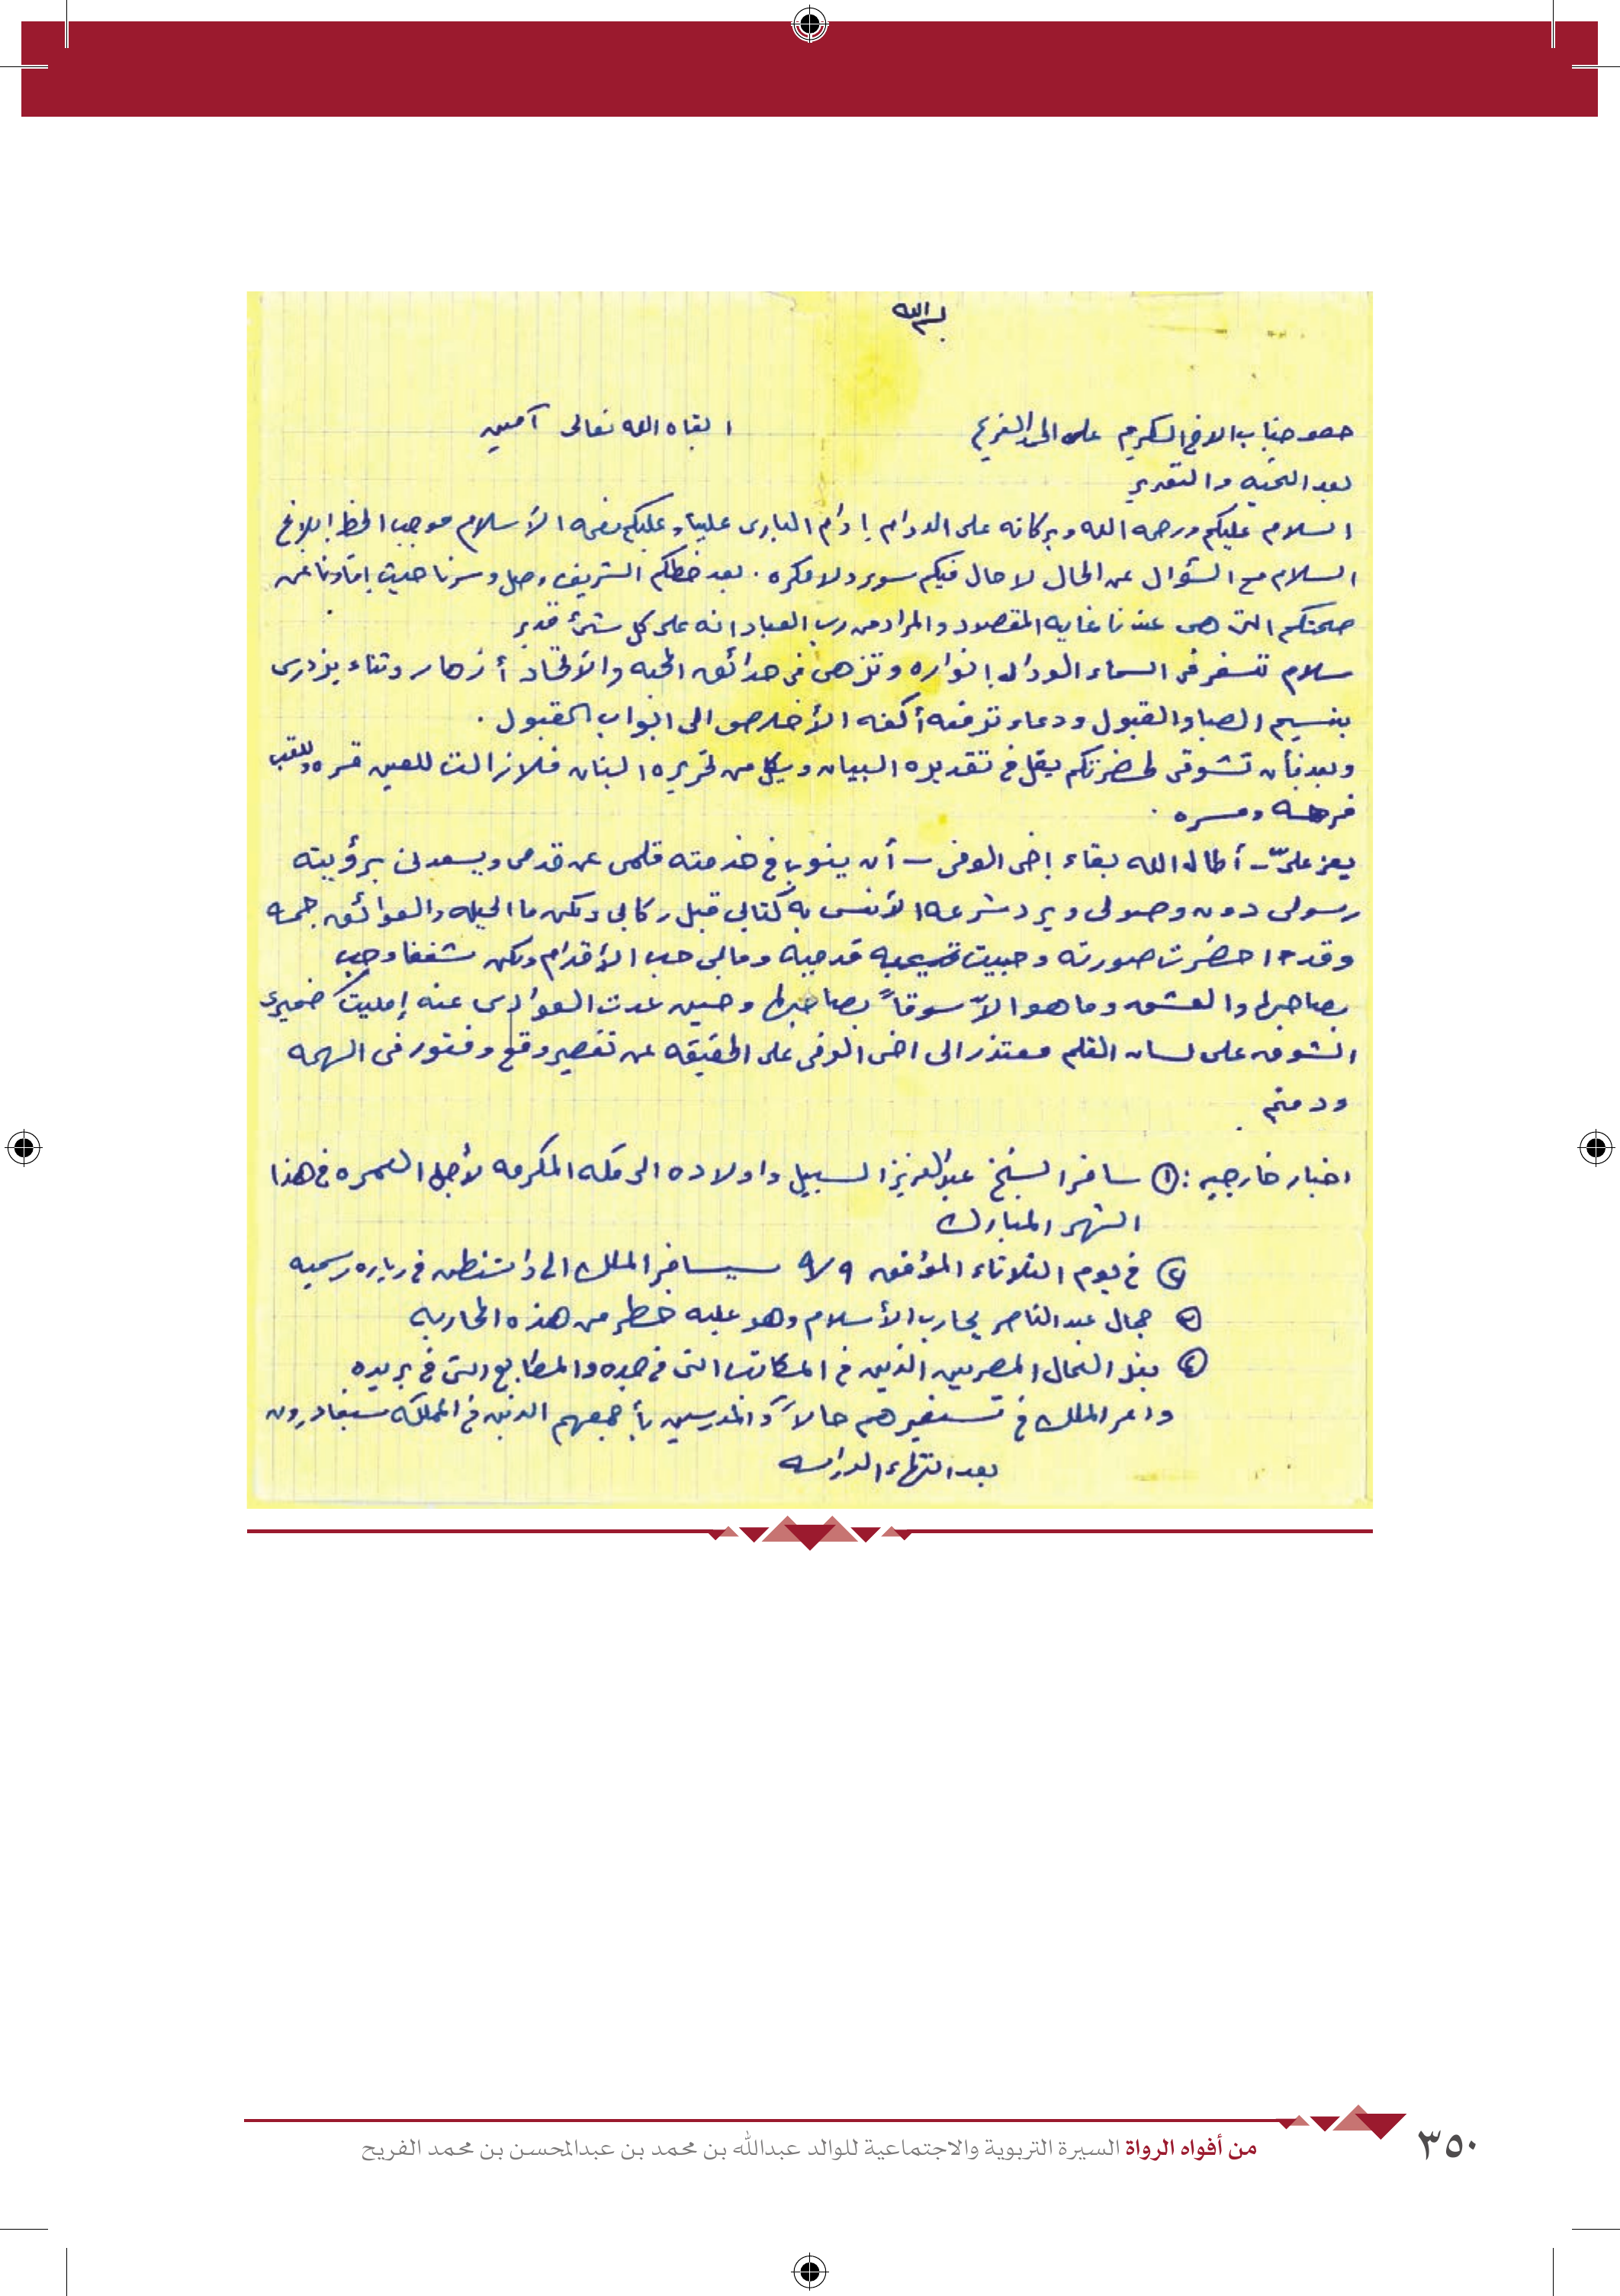 بسم الله
حضو جناب الاخ المكرم على الحمد الفريح ابقاه الله تعالى آمين
بعد التحيه والتقدير
السلام عليكم ورحمه الله وبركاته على الدوام ادام البارى علينا وعليكم نعمه الأسلام موجب الخط إبلاغ
السلام مع السؤال عن الحال لا حال فيكم سوء ولا مكره . بعد خطكم الشريف وصل وسرنا حيث إفادنا عن
صحتكم التى هى عندنا غايه المقصود والمراد من رب العباد انه على كل شئ قدير
سلام تسفر فى السماء الوداد انواره وتزهى فى حدائق المحبه والأتحاد أزهار وثناء يزدرى
بنسيم الصبا والقبول ودعاء ترفعه أكفه الأخلاص الى ابواب القبول .
وبعد فأن تشوقى لحضرتكم يقل فى تقديره البيان ويكل من تحريره البنان فلا زالت للعين قره وللقلب
فرحه ومسره .
يعز علىّ - أطال الله بقاء اخى الوفى - أن ينوب فى خدمته قلمى عن قدمى ويسعد برؤيته
رسولى دون وصولى ويرد شرعه الأنس به كتابى قبل ركابى ولكن ما الحيله والعوائق جمه
وقد احضرت صورته وحبيت قدميه ومابى حب الأقدام ولكن شغفا وحب
بصاحبها والعشق وما هو الاّ سوقاً بصاحبها وحين عدت العوادى عنه إمليت ضميرى
الشوق على لسان القلم معتذر الى اخى الوفى على الحقيقه عن تقصير وقع وفتور فى الهمه
ودمتم .
اخبار خارجيه : ١ سافر الشيخ عبدالعزيز السبيل واولاده الى مكه المكرمه لأجل العمره فى هذا
الشهر المبارك
٢ فى يوم الثلاثاء المؤفق ٩/٩ سيسافر الملك الى واشنطن فى زياره رسميه
٣ جمال عبد الناصر يحارب الأسلام وهو عليه خطر من هذه المحاربه
٤ العمال المصريين الذين فى المكاتب التى فى جده والمطابع التى فى بريده
وامر الملك فى تسفيرهم حالاً والمدرسين بأجمعهم الذين فى المملكه سيغادرون
بعد انتهاء الدراسه
٣٥٠ من أفواه الرواة السيرة التربوية والاجتماعية للوالد عبدالله بن محمد بن عبدالمحسن بن محمد الفريح